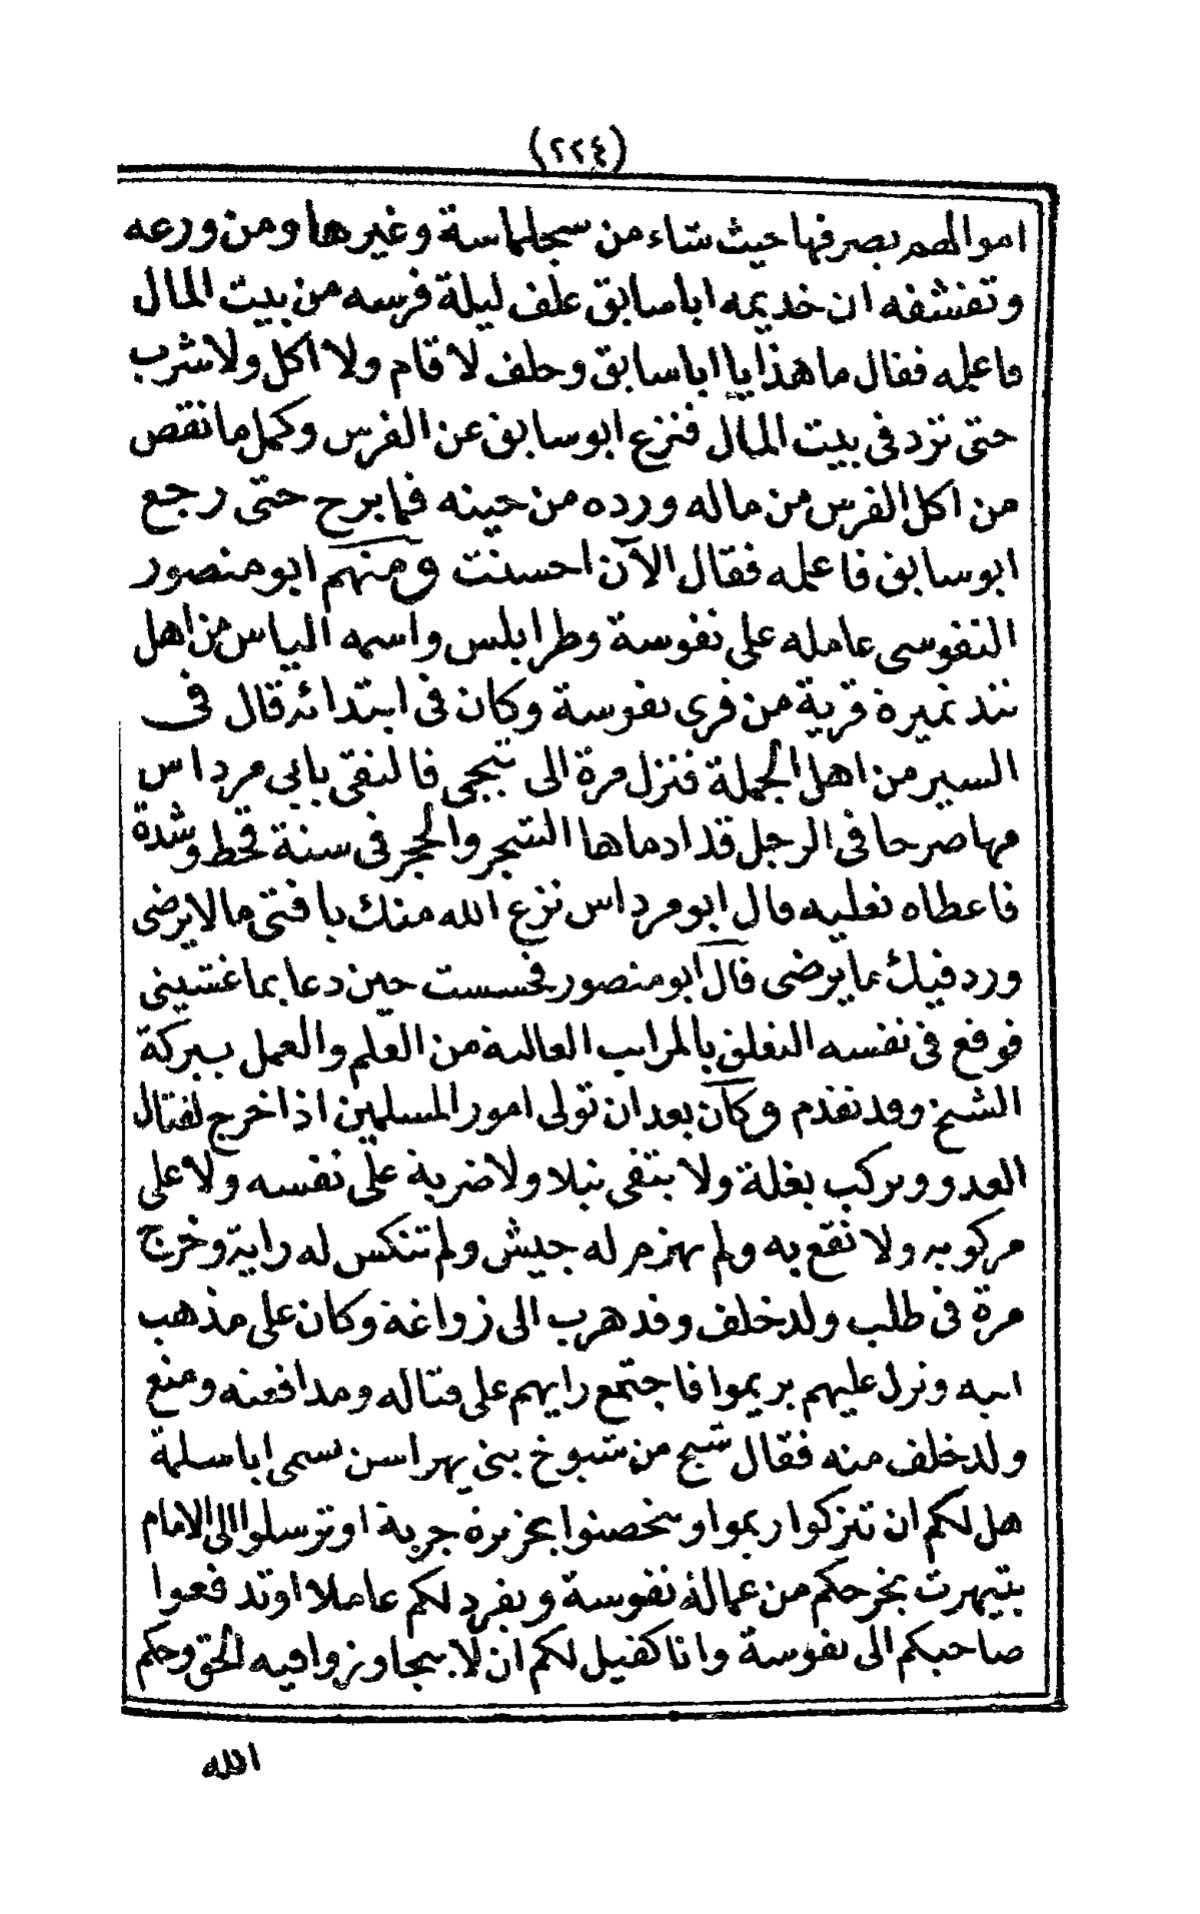 (٢٢٤)
اموالهم يصرفها حيث شاء من سجلماسة وغيرها ومن ورعه
وتقشفه ان خديمه اباسابق علف ليلة فرسه من بيت المال
فاعلمه فقال ما هذا يا اباسابق وحلف لا قام ولا اكل ولا شرب
حتى ترد في بيت المال فنزع ابو سابق عن الفرس وكمل ما نقص
من اكل الفرس من ماله ورده من حينه فما برح حتى رجع
ابو سابق فاعلمه فقال الآن احسنت ومنهم ابو منصور
النفوسى عامله على نفوسة وطرابلس واسمه الياس من اهل
تندميرة قرية من قرى نفوسة وكان في ابتدائه قال في
السير من اهل الجملة فنزل مرة الى تيجى فالتقى بابى مرداس
مهاصر حافى الرجل قد ادماها الشجر والحجر في سنة قحط وشدة
فاعطاه نعليه قال ابو مرداس نزع الله منك يا فتى ما لا يرضى
ورد فيك ما يرضى قال ابو منصور فحسست حين دعا بما غشينى
فوقع في نفسه التعلق بالمراتب العالية من العلم والعمل ببركة
الشيخ وقد تقدم وكان بعد ان تولى امور المسلمين اذا خرج لقتال
العدو ويركب بغلة ولا يتقى نبلا ولا ضربة على نفسه ولا على
مركوبه ولا تقع به ولم يهزم له جيش ولم تنكس له راية وخرج
مرة في طلب ولد خلف وقد هرب الى زواغة وكان على مذهب
ابيه ونزل عليهم بريموا فاجتمع رايهم على قتاله ومدافعته ومنع
ولد خلف منه فقال شيخ من شيوخ بنى يهراسن يسمى اباسلمة
هل لكم ان تتركوا ريموا وتتحصنوا بجزيرة جربة او ترسلوا الى الامام
بتيهرت يخرجكم من عمالة نفوسة ويفرد لكم عاملا او تدفعوا
صاحبكم الى نفوسة وانا كفيل لكم ان لا يتجاوزوا فيه الحق وحكم
الله